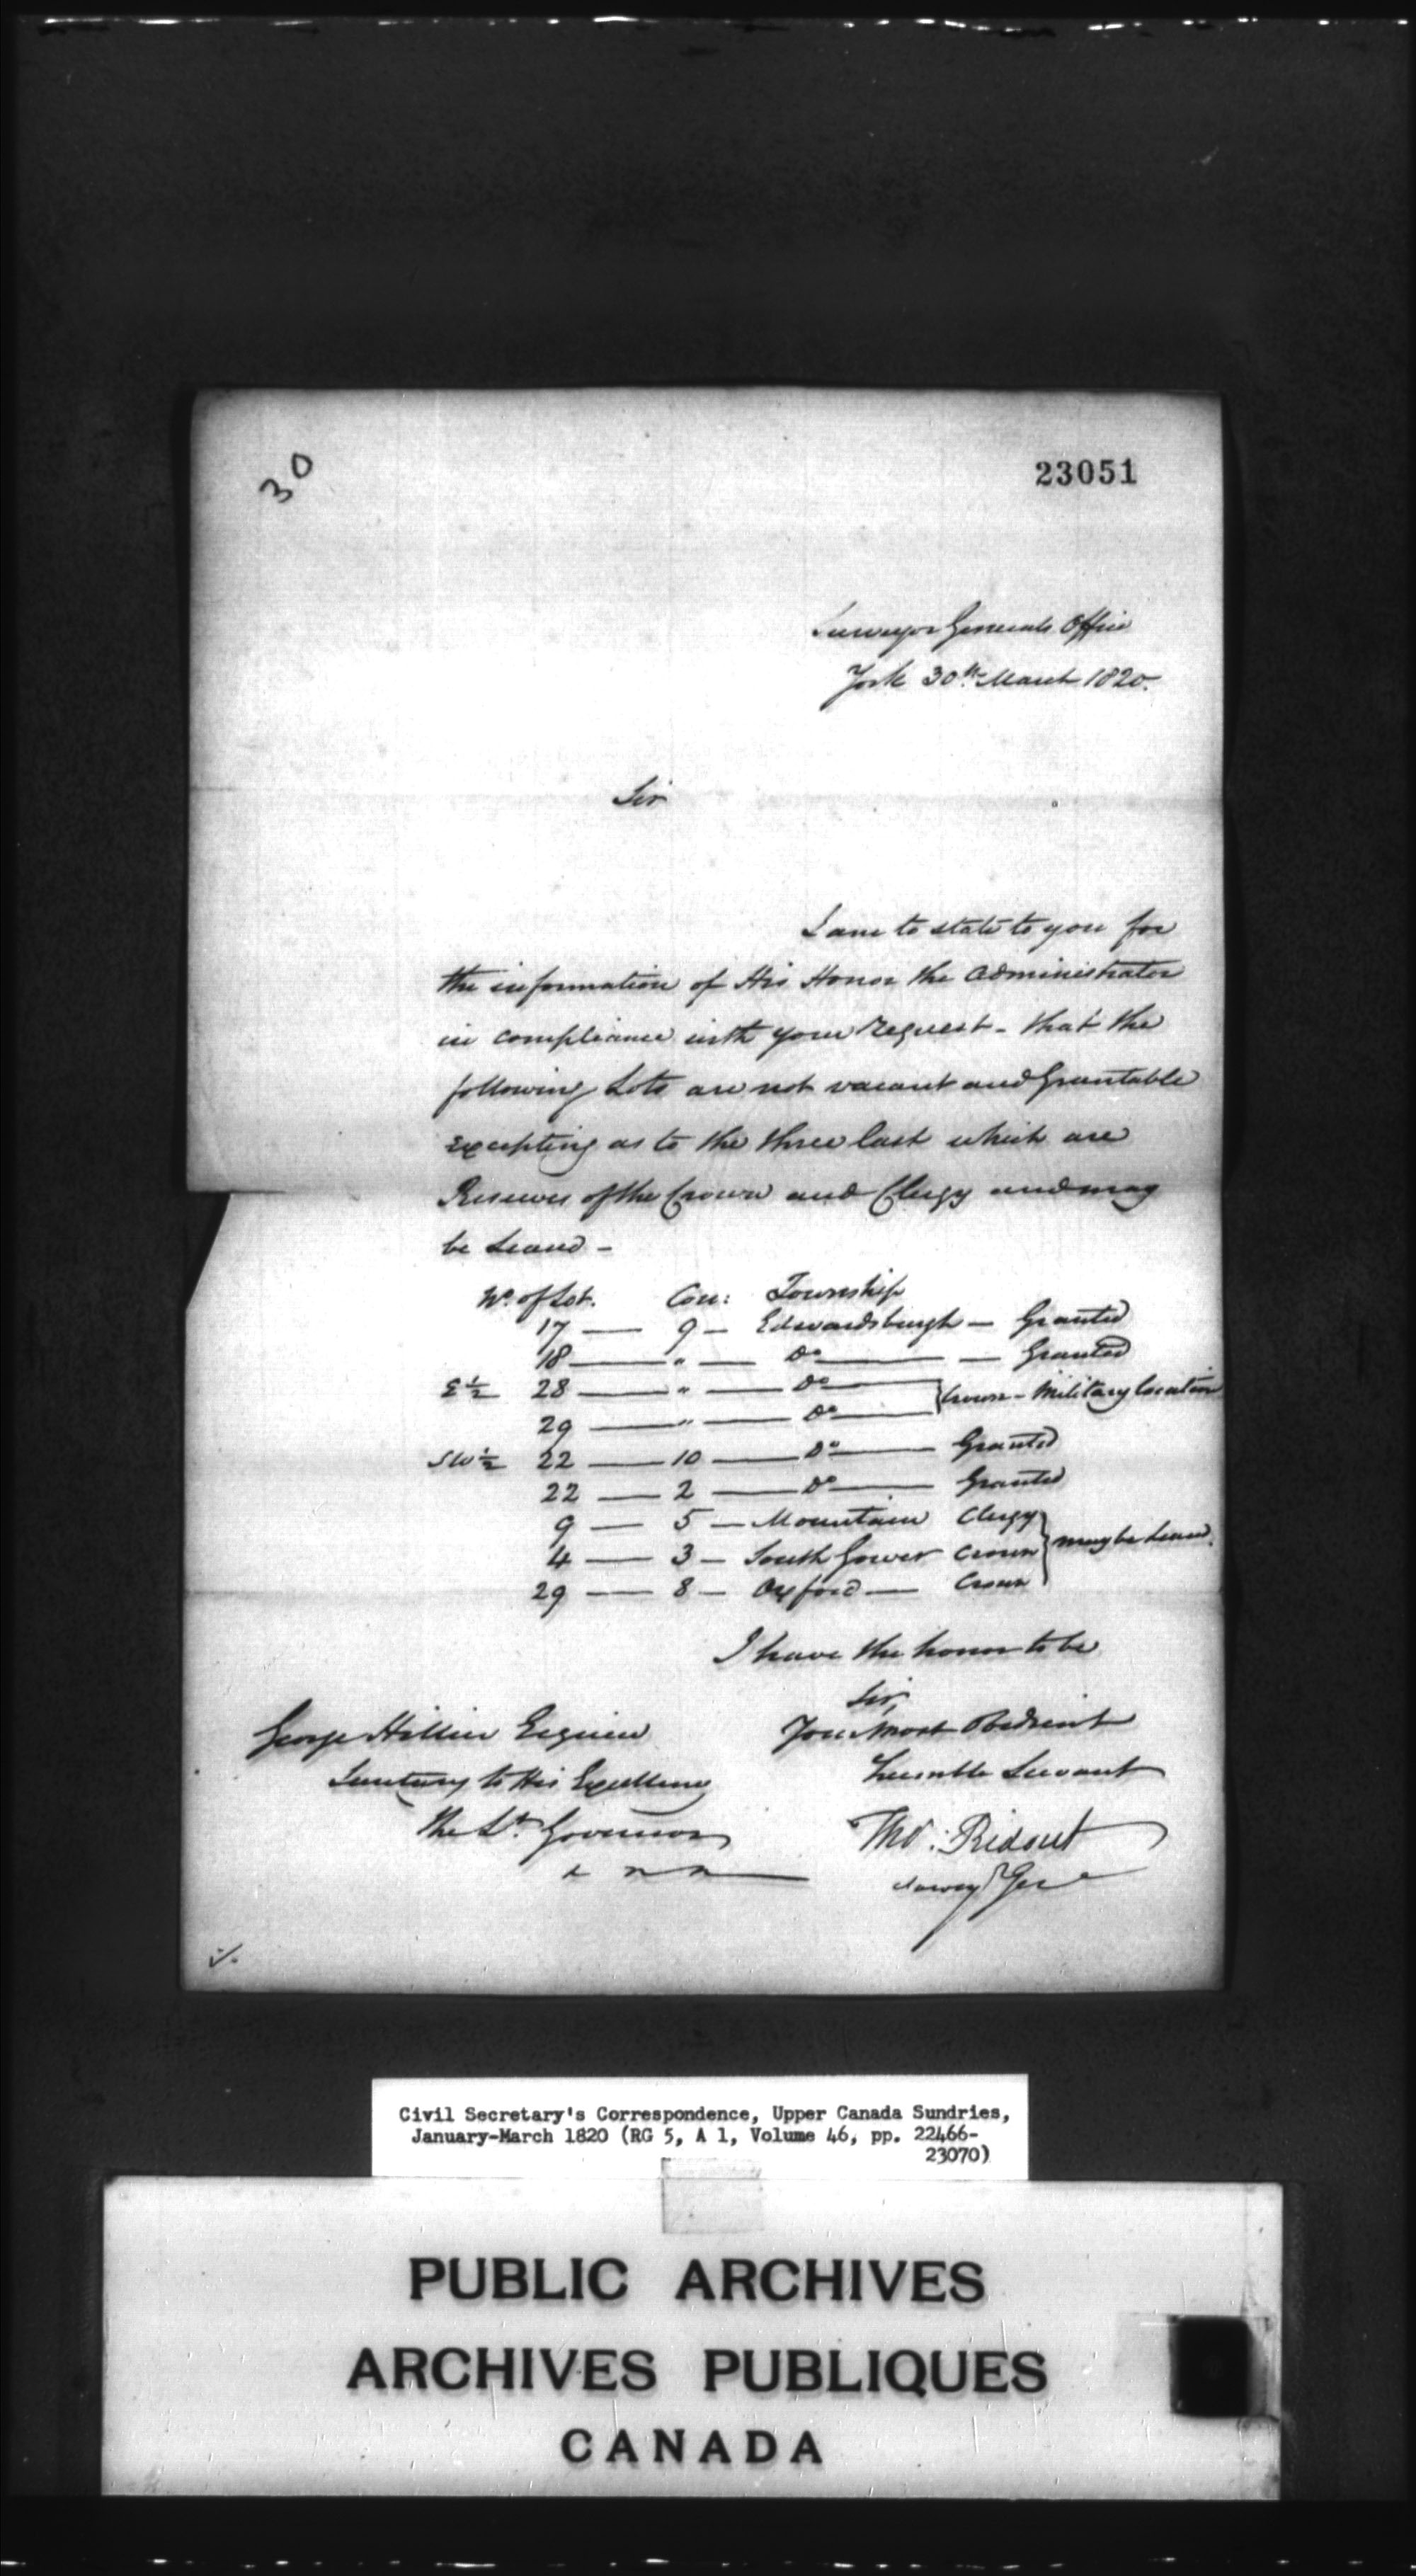 30
23051
Surveyor Generals Office
York 30th. March 1820.
Sir
I am to state to you for
the information of His Honor the Administrator
in compliance with your Request - that the
following Lots are not vacant and Grantable
excepting as to the three last which are
Reserves of the Crown and Clergy and may
be Leased -
No. of Lot. Con: Township
17 — 9 — Edwardsburgh — Granted
18 — " — Do — Granted
E ½ 28 — " — Do
29 — " — Do } Crown - Military location
SW ½ 22 — 10 — Do — Granted
22 — 2 — Do — Granted
9 — 5 — Mountain Clergy
4 — 3 — South Gower Crown } may be Leased.
29 — 8 — Oxford — Crown
I have the honor to be
Sir,
Your Most Obedient
Humble Servant
Tho: Ridout
Survey Gen
George Hillier Esquire
Secretary to His Excellency
the Lt. Governor
Civil Secretary's Correspondence, Upper Canada Sundries,
January-March 1820 (RG 5, A 1, Volume 46, pp. 22466-
23070)
PUBLIC ARCHIVES
ARCHIVES PUBLIQUES
CANADA